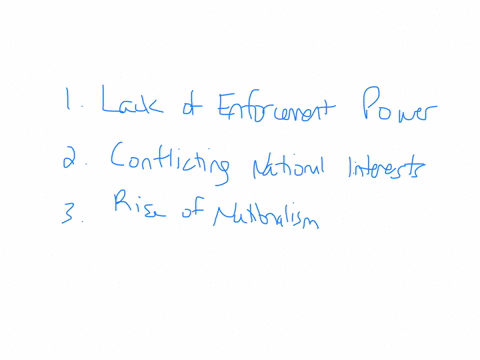 1. Lack of Enforcement Power
2. Conflicting National Interests
3. Rise of Nationalism